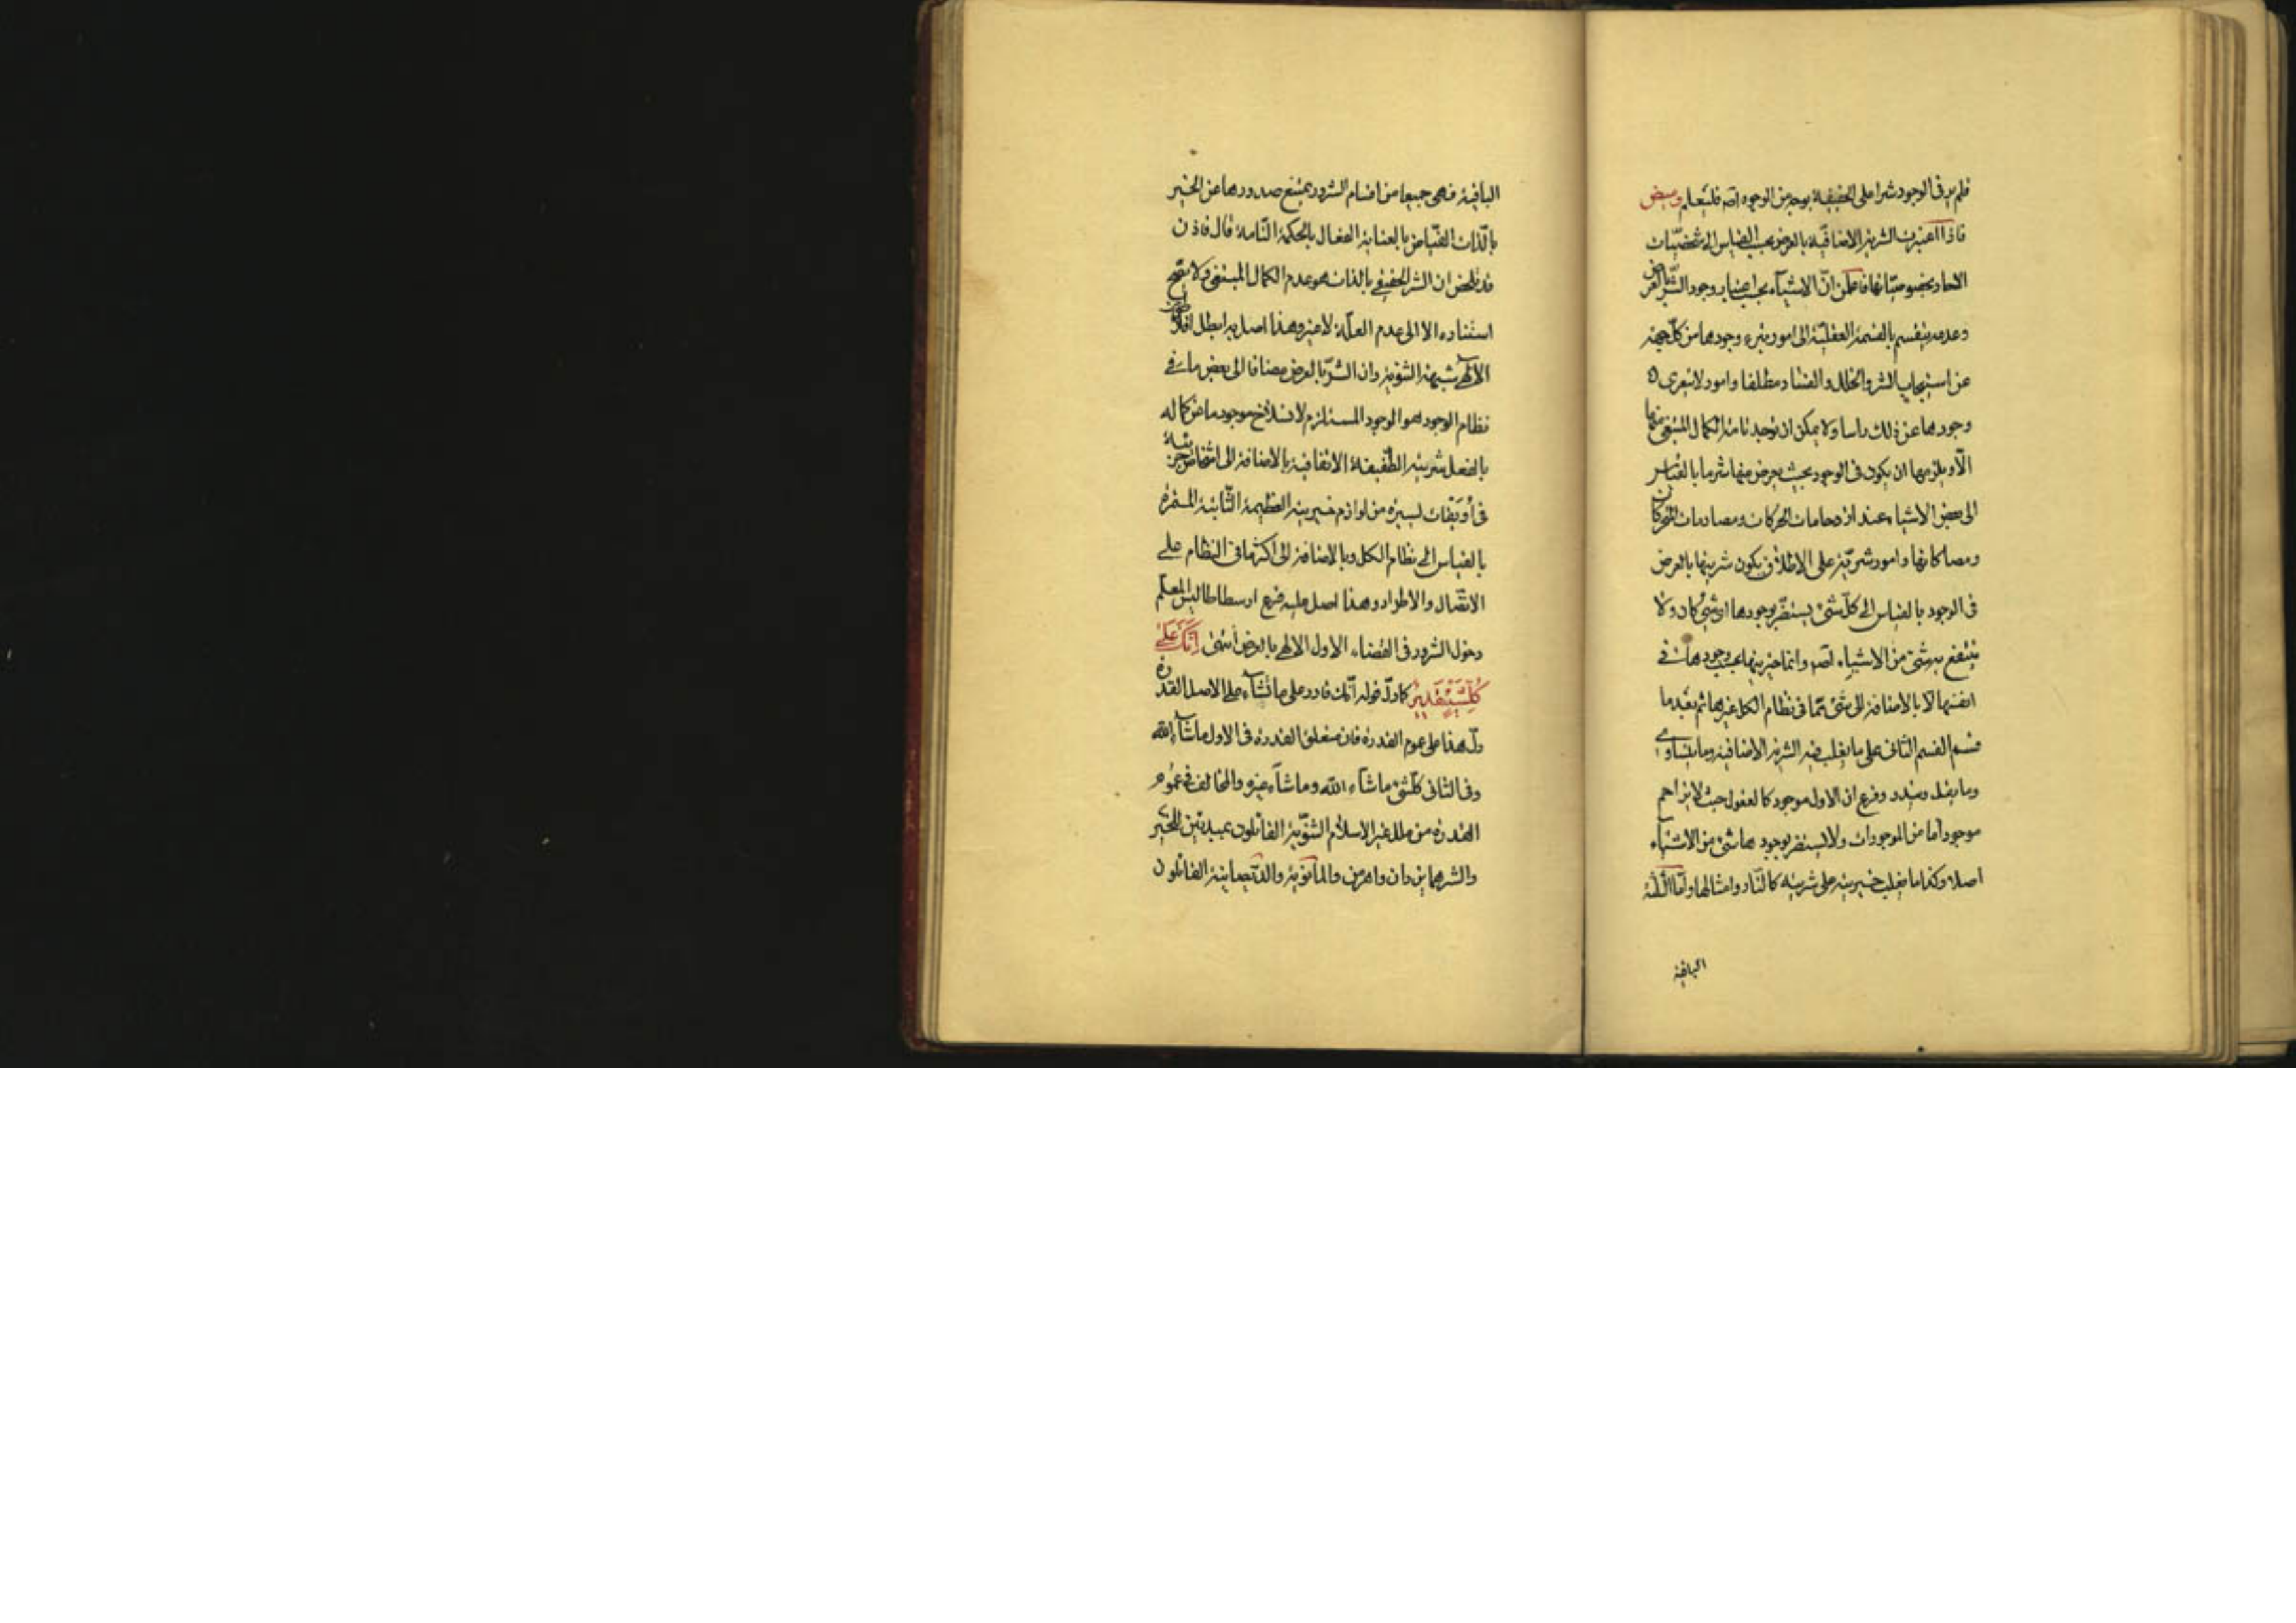 فلم ير فى الوجود شرا على الحقيقة بوجه من الوجوه اصلا فليتعلم وميض
فاذا اعتبرت الشرية الاضافية بالعرض بحسب القياس الى شخصيات
الاحاد بخصوصياتها فاعلمن ان الاشياء بحسب اعتبار وجود الشر بالعرض
وعدمه ينقسم بالقسمة العقلية الى امور يتبرء وجودها من كل جهة
عن استيجاب الشر والخلل والفساد مطلقا وامور لا يتعرى
وجودها عن ذلك راسا ولا يمكن ان توجد تامة الكمال المبتغى منها
الا ويلزمها ان يكون فى الوجود بحيث يعرض منها شر ما بالقياس
الى بعض الاشياء عند ازدحامات الحركات ومصادمات المتحركات
ومصاكاتها وامور شرية على الاطلاق يكون شريتها بالعرض
فى الوجود بالقياس الى كل شئ يستضر بوجودها اى شئ كان ولا
ينتفع به شئ من الاشياء اصلا وانما خيريتها بحسب وجودها فى
انفسها لا بالاضافة الى شئ مما فى نظام الكل غيرها ثم بعد ما
قسم القسم الثانى على ما يغلب فيه الشرية الاضافية وما يتساوى
وما يقل ويندر وفرع ان الاول موجود كالعقول حيث لا يزاحم
موجودا ما من الموجودات ولا يستضر بوجودها شئ من الاشياء
اصلا وكذا ما يغلب خيريته على شريته كالنار وامثالها واما الثلثة
الباقية
الباقية فهى جميعا من اقسام الشرور يمتنع صدورها عن الخير
بالذات الفياض بالعناية الفعال بالحكمة التامة قال فاذن
قد تلخص ان الشر الحقيقى بالذات هو عدم الكمال المبتغى ولا يصح
استناده الا الى عدم العلة لا غير وهذا اصل به ابطل افلاطون
الالهى شبهة الثنوية وان الشر بالعرض مضافا الى بعض ما فى
نظام الوجود هو الوجود المستلزم لانسلاخ موجود ما عن كماله
بالفعل شريته الطفيفة الاتفاقية بالاضافة الى اشخاص جزئية
فى اويقات يسيرة من لوازم خيريته العظيمة الثابتة المستمرة
بالقياس الى نظام الكل وبالاضافة الى اكثر ما فى النظام على
الاتصال والاطراد وهذا اصل عليه فرع ارسطاطاليس المعلم
دخول الشرور فى القضاء الاول الالهى بالعرض انتهى اِنَّكَ عَلٰى
كُلِّ شَيْءٍ قَدِيرٌ كما دل قوله انك قادر على ما تشاء على الاصل القدرة
دل هذا على عموم القدرة فان متعلق القدرة فى الاول ما شاء الله
وفى الثانى كل شئ ما شاء الله وما شاء غيره والمخالف فى عموم
القدرة من ملل غير الاسلام الثنوية القائلون بمبدئين للخير
والشر هما يزدان واهرمن والمانوية والديصانية القائلون